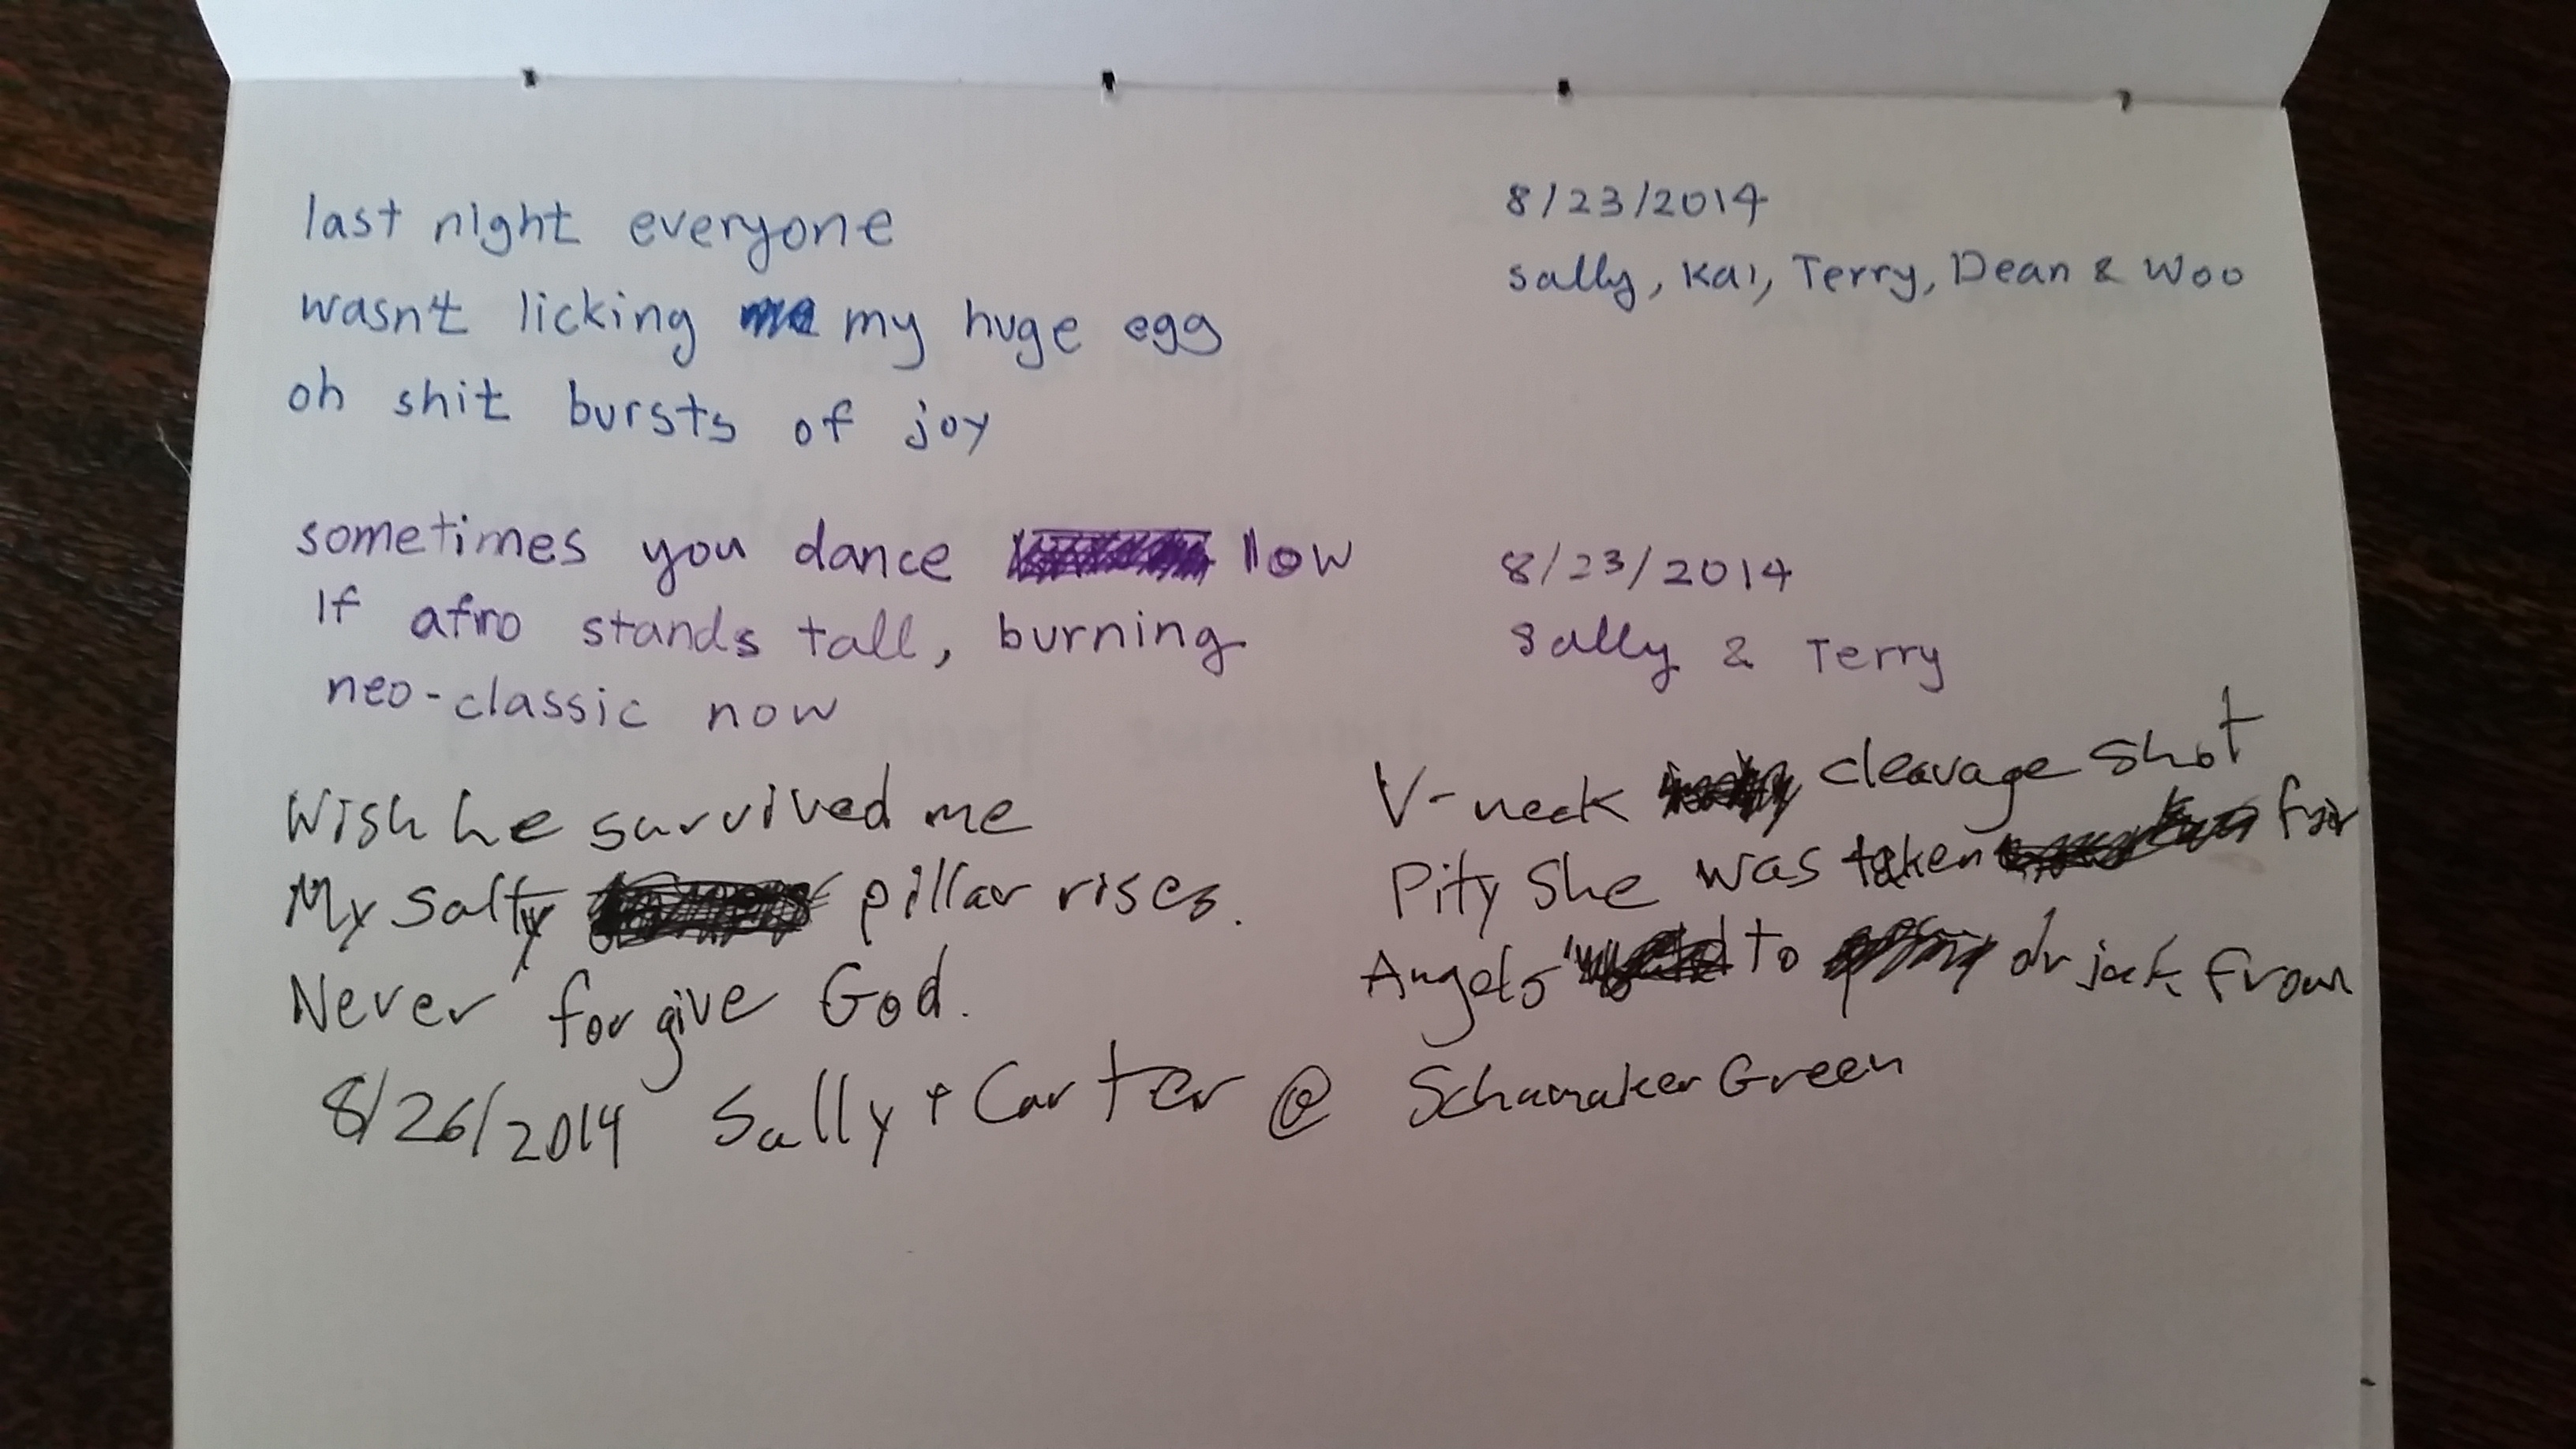 last night everyone
wasn't licking my huge egg
oh shit bursts of joy
8/23/2014
Sally, Kai, Terry, Dean & Woo
sometimes you dance low
If afro stands tall, burning
neo-classic now
8/23/2014
Sally & Terry
Wish he survived me
My Salty pillar rises.
Never forgive God.
V-neck cleavage shot
Pity She was taken for
Angels to or jack from
8/26/2014 Sally + Carter @ Schamaker Green